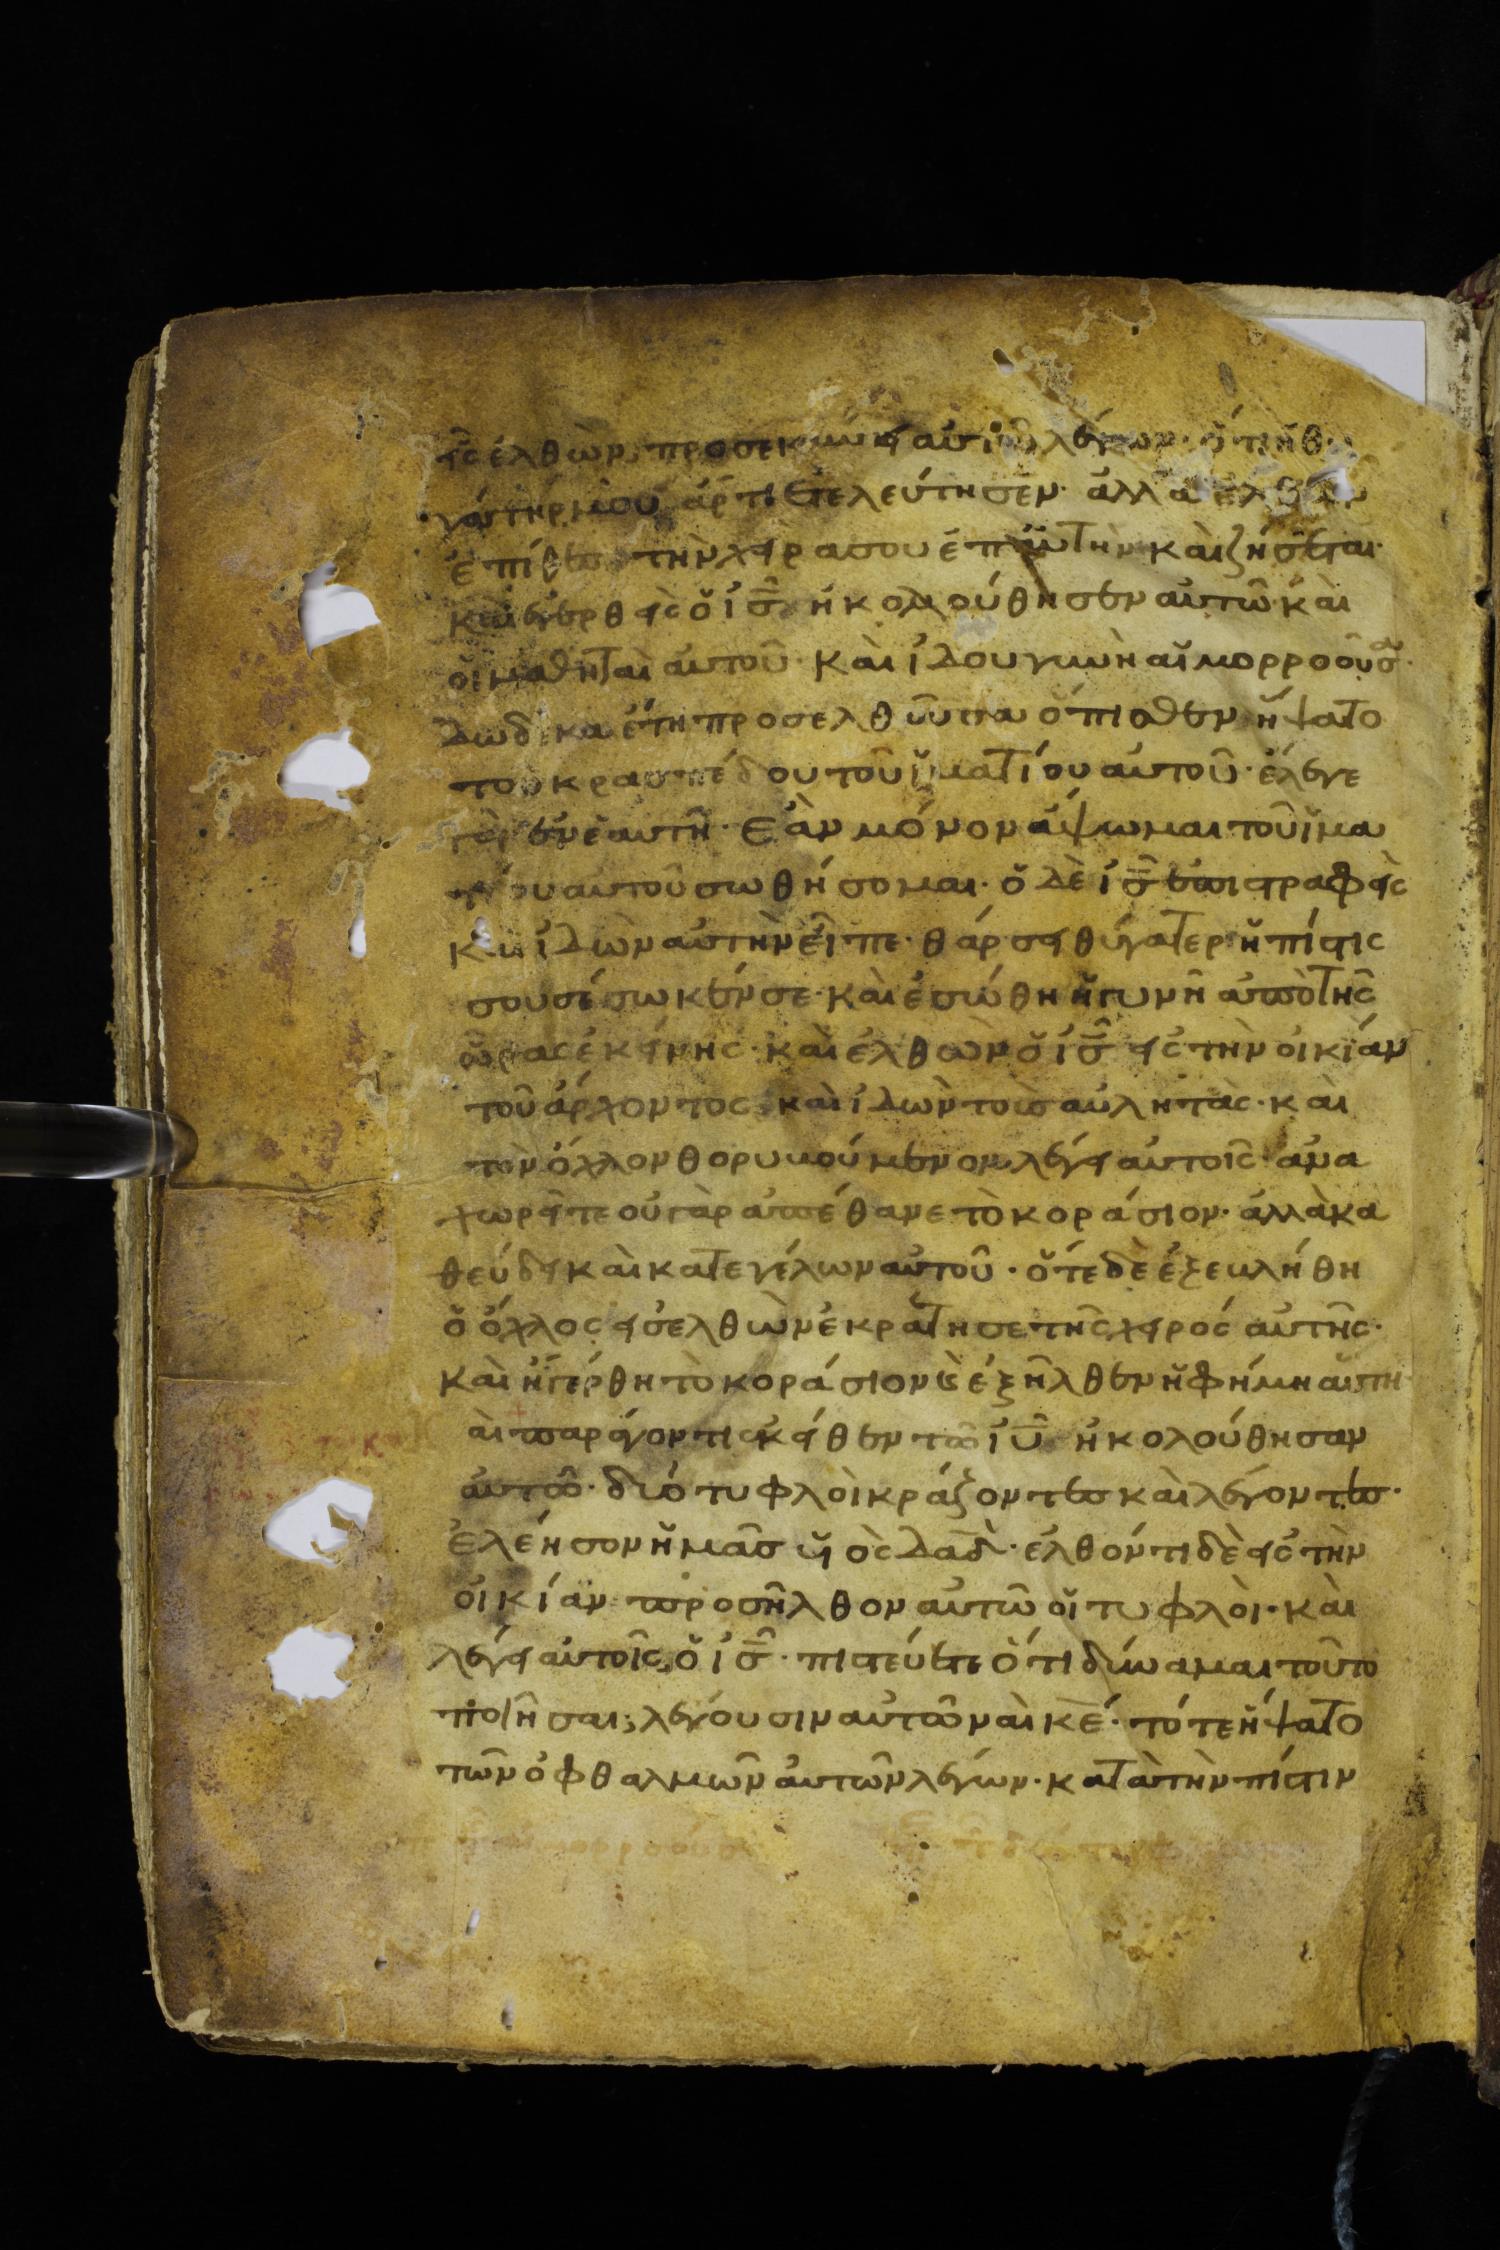 εἷς ἐλθὼν προσεκύνει αὐτῶ λέγων· ὅτι ἡ θυ
γάτηρ μου ἄρτι ἐτελεύτησεν· ἀλλὰ ἐλθὼν
ἐπίθες τὴν χεῖρα σου ἐπ αὐτὴν καὶ ζήσεται·
καὶ ἐγερθεὶς ὁ ις ἠκολούθησεν αὐτῶ καὶ
οἱ μαθηταὶ αὐτοῦ· Καὶ ἰδου γυνὴ αἱμορροοῦσα
δώδεκα ἔτη προσελθοῦσα ὄπισθεν ἥψατο
τοῦ κρασπέδου τοῦ ἱματίου αὐτοῦ· ἔλεγε
γὰρ ἐν ἑαυτῆ· Ἐὰν μόνον ἅψωμαι τοῦ ἱμα
τίου αὐτοῦ σωθήσομαι· ὁ δὲ ις ἐπιστραφεὶς
καὶ ἰδὼν αὐτὴν εἶπε· θάρσει θύγατερ ἡ πίστις
σου σέσωκέν σε· καὶ ἐσώθη ἡ γυνῆ ἀπὸ τῆς
ὥρας ἐκείνης· καὶ ἐλθὼν ὁ ις εἰς τὴν οἰκίαν
τοῦ ἄρχοντος· καὶ ἰδὼν τοὺς αὐλητὰς· καὶ
τὸν ὄχλον θορυβούμενον λέγει αὐτοῖς· ἀνα
χωρεῖτε οὐ γὰρ ἀπέθανε τὸ κοράσιον· ἀλλὰ κα
θεύδει καὶ κατεγέλων αὐτοῦ· ὅτε δὲ ἐξεβλήθη
ὁ ὄχλος εἰσελθὼν ἐκράτησε τῆς χειρός αὐτῆς·
καὶ ἠγέρθη τὸ κοράσιον καὶ ἐξῆλθεν ἡ φήμη αὕτη·
αὶ παράγοντι ἐκεῖθεν τῶ ιυ ἠκολούθησαν
αὐτῶ· δύο τυφλοὶ κράζοντες καὶ λέγοντες·
ἐλέησον ἡμᾶς υἱὸς δαδ· ἐλθόντι δὲ εἰς τὴν
οἰκίαν προσῆλθον αὐτῶ οἱ τυφλοὶ· καὶ
λέγει αὐτοῖς ὁ ις· πιστεύετε ὅτι δύναμαι τοῦτο
ποιῆσαι; λέγουσιν αὐτῶ ναὶ κε· τότε ἥψατο
τῶν ὀφθαλμῶν αὐτῶν λέγων· κατὰ τὴν πίστιν